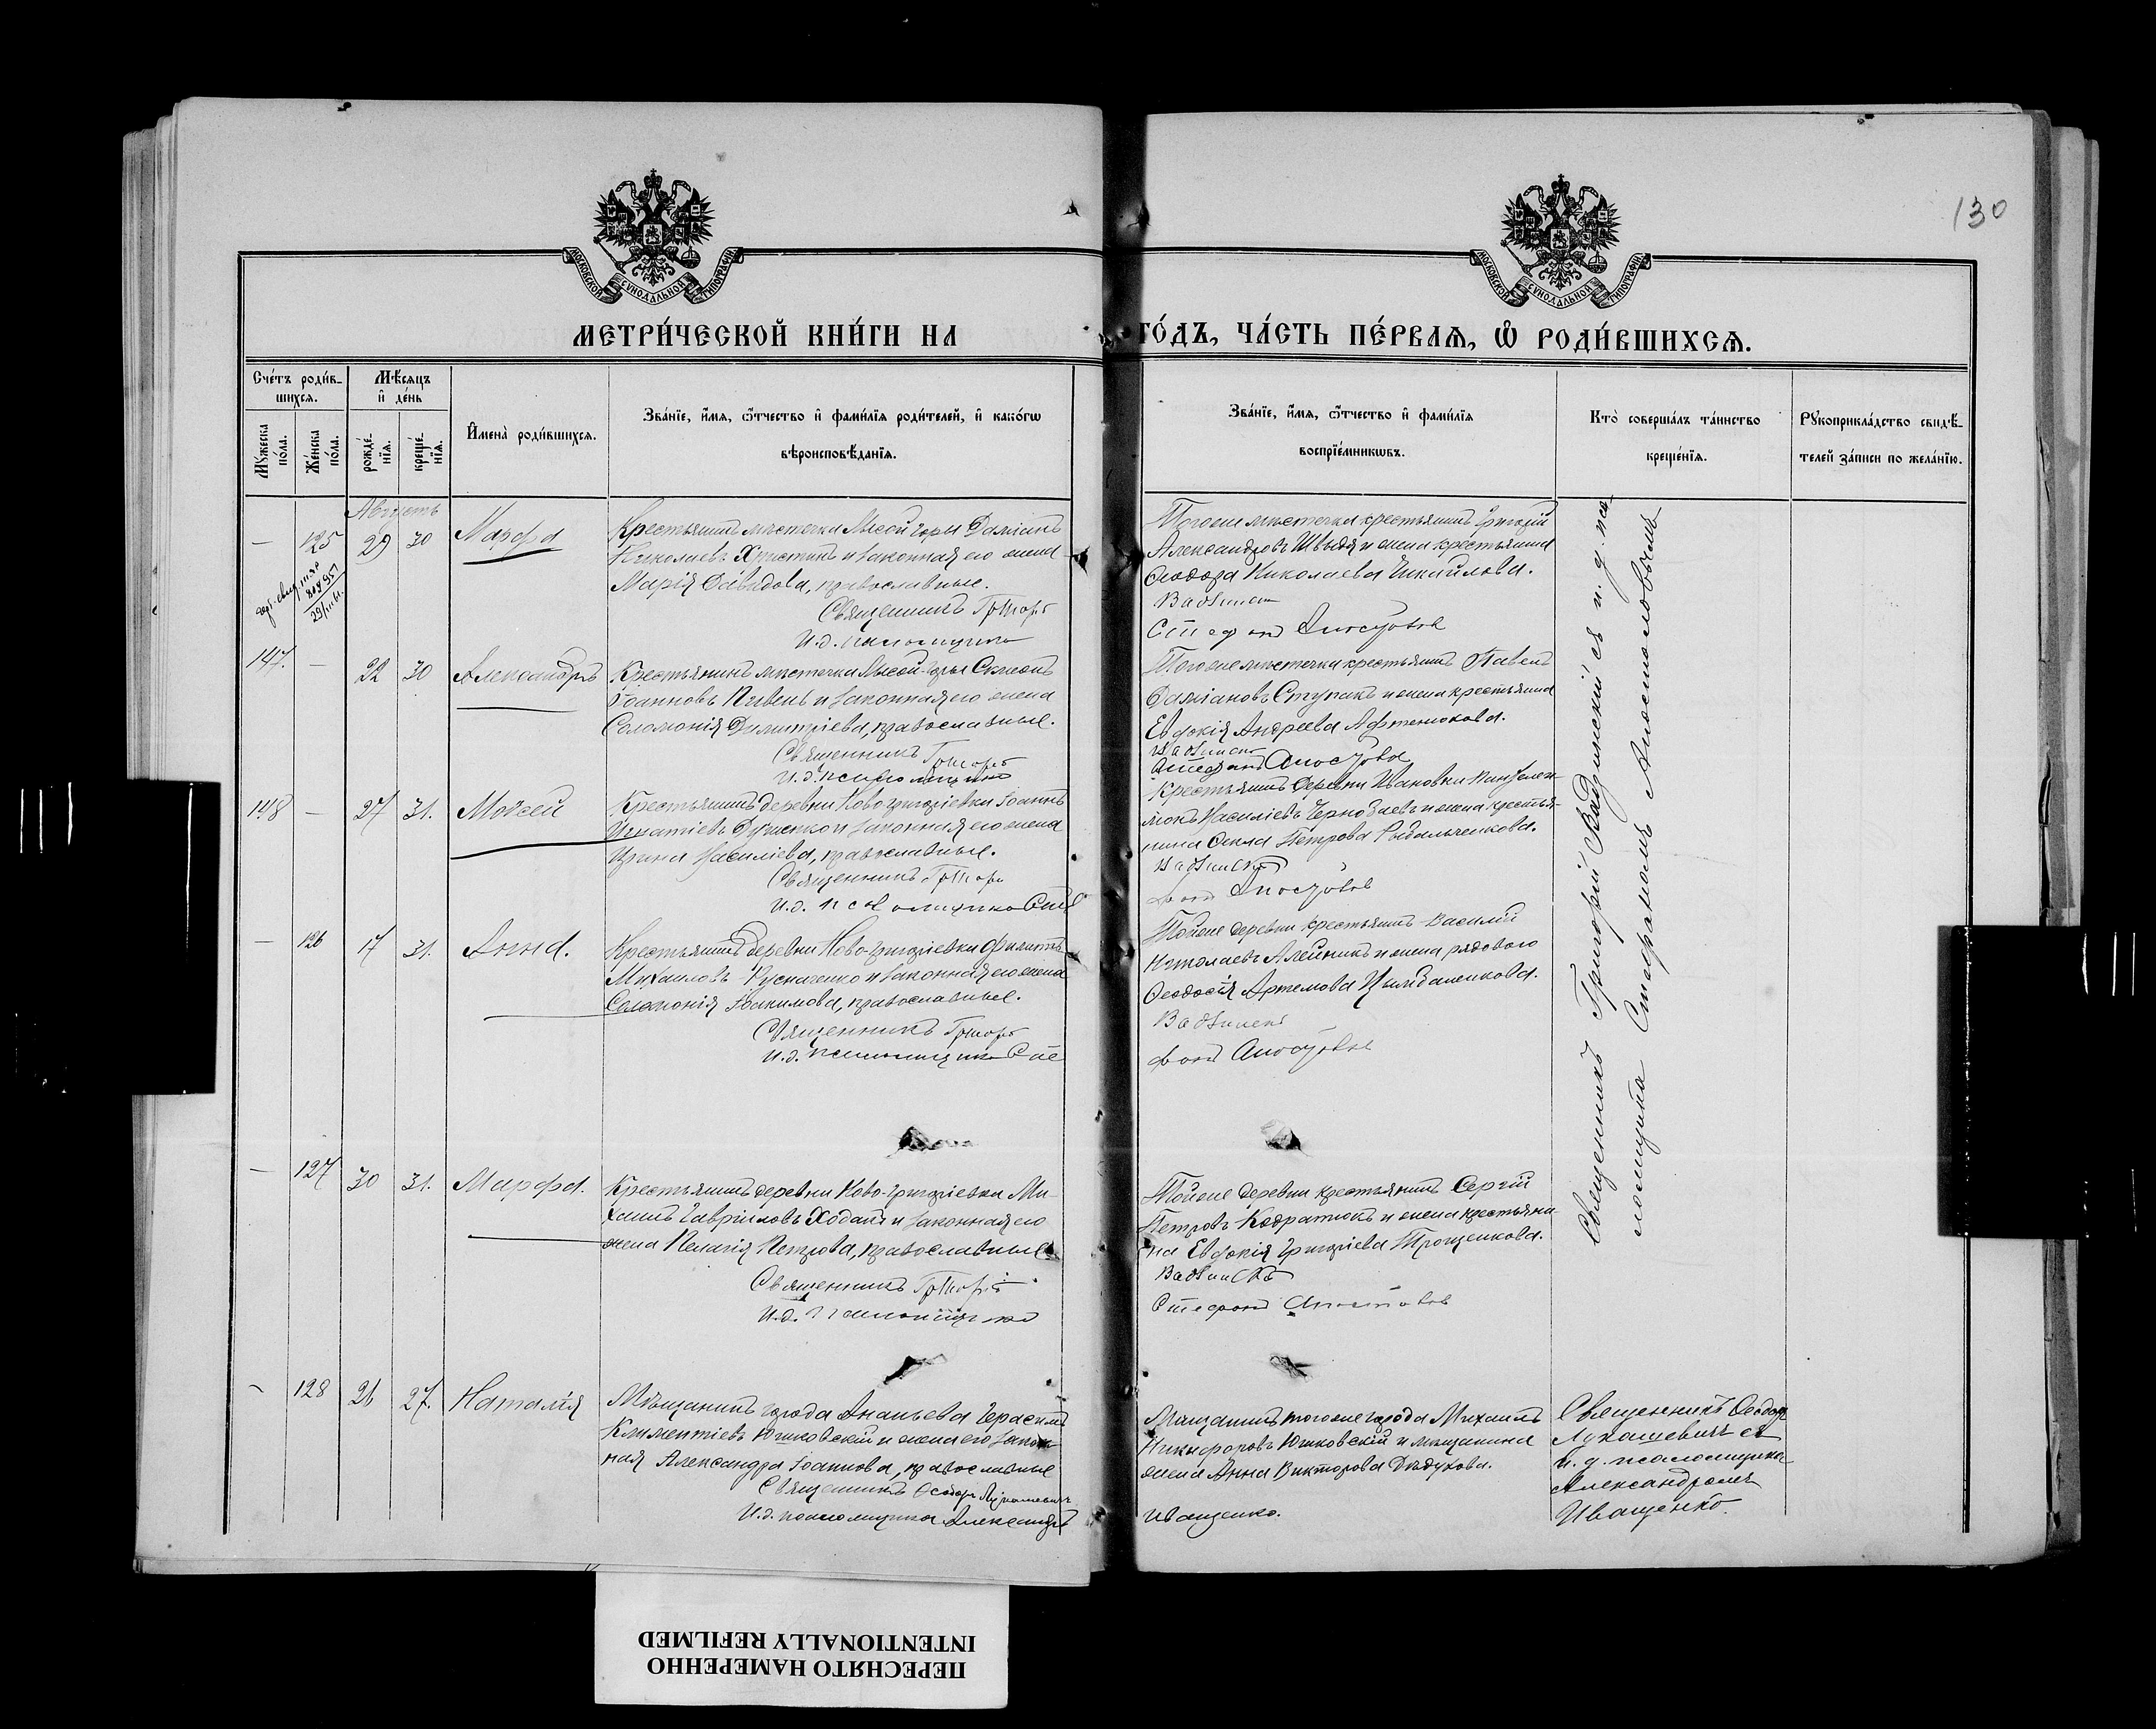 130
МОСКОВСКОЙ СѴНОДАЛЬНОЙ ТИПОГРАФІИ
МОСКОВСКОЙ СѴНОДАЛЬНОЙ ТИПОГРАФІИ
МЕТРИ́ЧЕСКОЙ КНИ́ГИ НА
ГО́ДЪ, ЧА́СТЬ ПЕ́РВАѦ, Ѡ҆ РОДИ́ВШИХСѦ.
Сче́тъ роди́в-
шихсѧ.
Мѣ́сѧцъ
и҆ де́нь
Мꙋ́жеска
по́ла.
Же́нска
по́ла.
рожде́-
нїѧ.
креще́-
нїѧ.
И҆мена̀ роди́вшихсѧ.
Зва́нїе, и҆́мѧ, ѻ҆́тчество и҆ фами́лїѧ роди́телей, и҆ како́гѡ
вѣроисповѣ́данїѧ.
Зва́нїе, и҆́мѧ, ѻ҆́тчество и҆ фами́лїѧ
воспрїе́мникѡвъ.
Кто̀ соверша́лъ та́инство
креще́нїѧ.
Рꙋкоприкла́дство свидѣ́-
телей за́писи по жела́нїю.
Августъ
— 125 29 30 Марфа
Крестьянинъ мѣстечка Лысой горы Даміанъ
Николаевъ Христинъ и законная его жена
Марія Давидова, православные.
Священникъ Григорій
И.д. псаломщика
Тогоже мѣстечка крестьянинъ Григорій
Александровъ Швыдя и жена крестьянина
Ѳеодора Николаева
Стефанъ Апостоловъ
147. — 22 30 Александръ
Крестьянинъ мѣстечка Лысой-Горы Симеонъ
Іоанновъ Пивень и законная его жена
Соломонія Димитріева, православные.
Священникъ Григорій
И.д. псаломщика
Тогоже мѣстечка крестьянинъ Павелъ
Даміановъ Ступакъ и жена крестьянина
Евдокія Андреева Афтенюкова.
Стефанъ Апостоловъ
148 — 27 31. Моѵсей
Крестьянинъ деревни Ново-Григоріевки Іоаннъ
Игнатіевъ и законная его жена
Ирина Василіева, православные.
Священникъ Григорій
И.д. псаломщика Сте
Крестьянинъ деревни Ивановки
Василіевъ и жена крестья-
нина Ѳекла Петрова Рыбальченкова.
фанъ Апостоловъ
— 126 17 31. Анна.
Крестьянинъ деревни Ново-Григоріевки Филиппъ
Михаиловъ Кусниченко и законная его жена
Соломонія Іоакимова, православные.
Священникъ Григорій
И.д. псаломщика Сте
Тойже деревни крестьянинъ Василій
Николаевъ Алейникъ и жена рядового
Ѳеодосія Артемова
фанъ Апостоловъ
— 127 30 31. Марфа.
Крестьянинъ деревни Ново-Григоріевки Ми-
хаилъ Гавріиловъ Ходанъ и законная его
жена Пелагія Петрова, православные.
Священникъ Григорій
И.д. псаломщика
Тойже деревни крестьянинъ Сергій
Петровъ Кодратюкъ и жена крестьяни-
на Евдокія Григоріева Троценкова.
Стефанъ Апостоловъ
Священникъ Григорій Вадзинскій съ и. д. пса-
ломщика Стефаномъ Апостоловымъ
— 128 26 27. Наталія
Мѣщанинъ города Ананьева Герасимъ
Климентіевъ Юшковскій и жена его закон-
ная Александра Іоаннова, православные
Священникъ Ѳеодоръ Лукашевичъ
И.д. псаломщика Александръ
Мѣщанинъ тогоже города Михаилъ
Никифоровъ Юшковскій и мѣщанина
жена Анна Викторова Дядухова.
Иващенко.
Священникъ Ѳеодоръ
Лукашевичъ съ
и. д. псаломщика
Александромъ
Иващенко.
ПЕРЕСНЯТО НАМЕРЕННО
INTENTIONALLY REFILMED